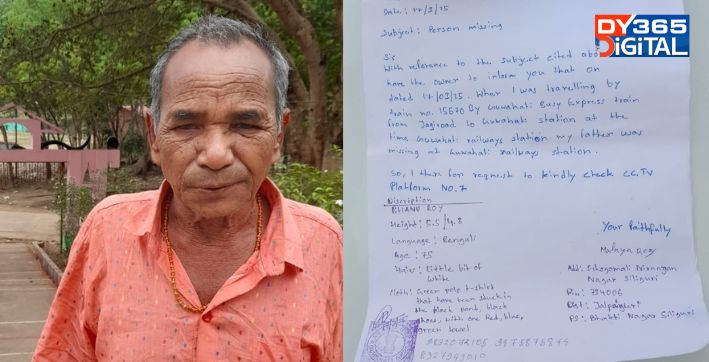 DY365
DiGITAL
Date: 17/3/25
Subject: Person missing
Sir
With reference to the subject cited abo
have the owner to inform you that on
dated 17/03/25. When I was travelling by
train no. 15670 By Guwahati Express train
from Jagiroad to Guwahati station at the
time Guwahati railways station my father was
missing at Guwahati railways station.
So, I therefor request to kindly check CC.TV
Platform NO.7
Discription
BHANU ROY
Height: 5.5/4.8
Language: Bengali
Age: 75
Haire: Little bit of
White
Cloth: Green polo t-shirt
that have been stuck in
the black pant, black
shoes, with one Red, blue,
green towel
Your Faithfully
Add: Niranjan
Nagar Siliguri
Pin: 734006
Dist: Jalpaiguri
PS: Bhakti Nagar Siliguri